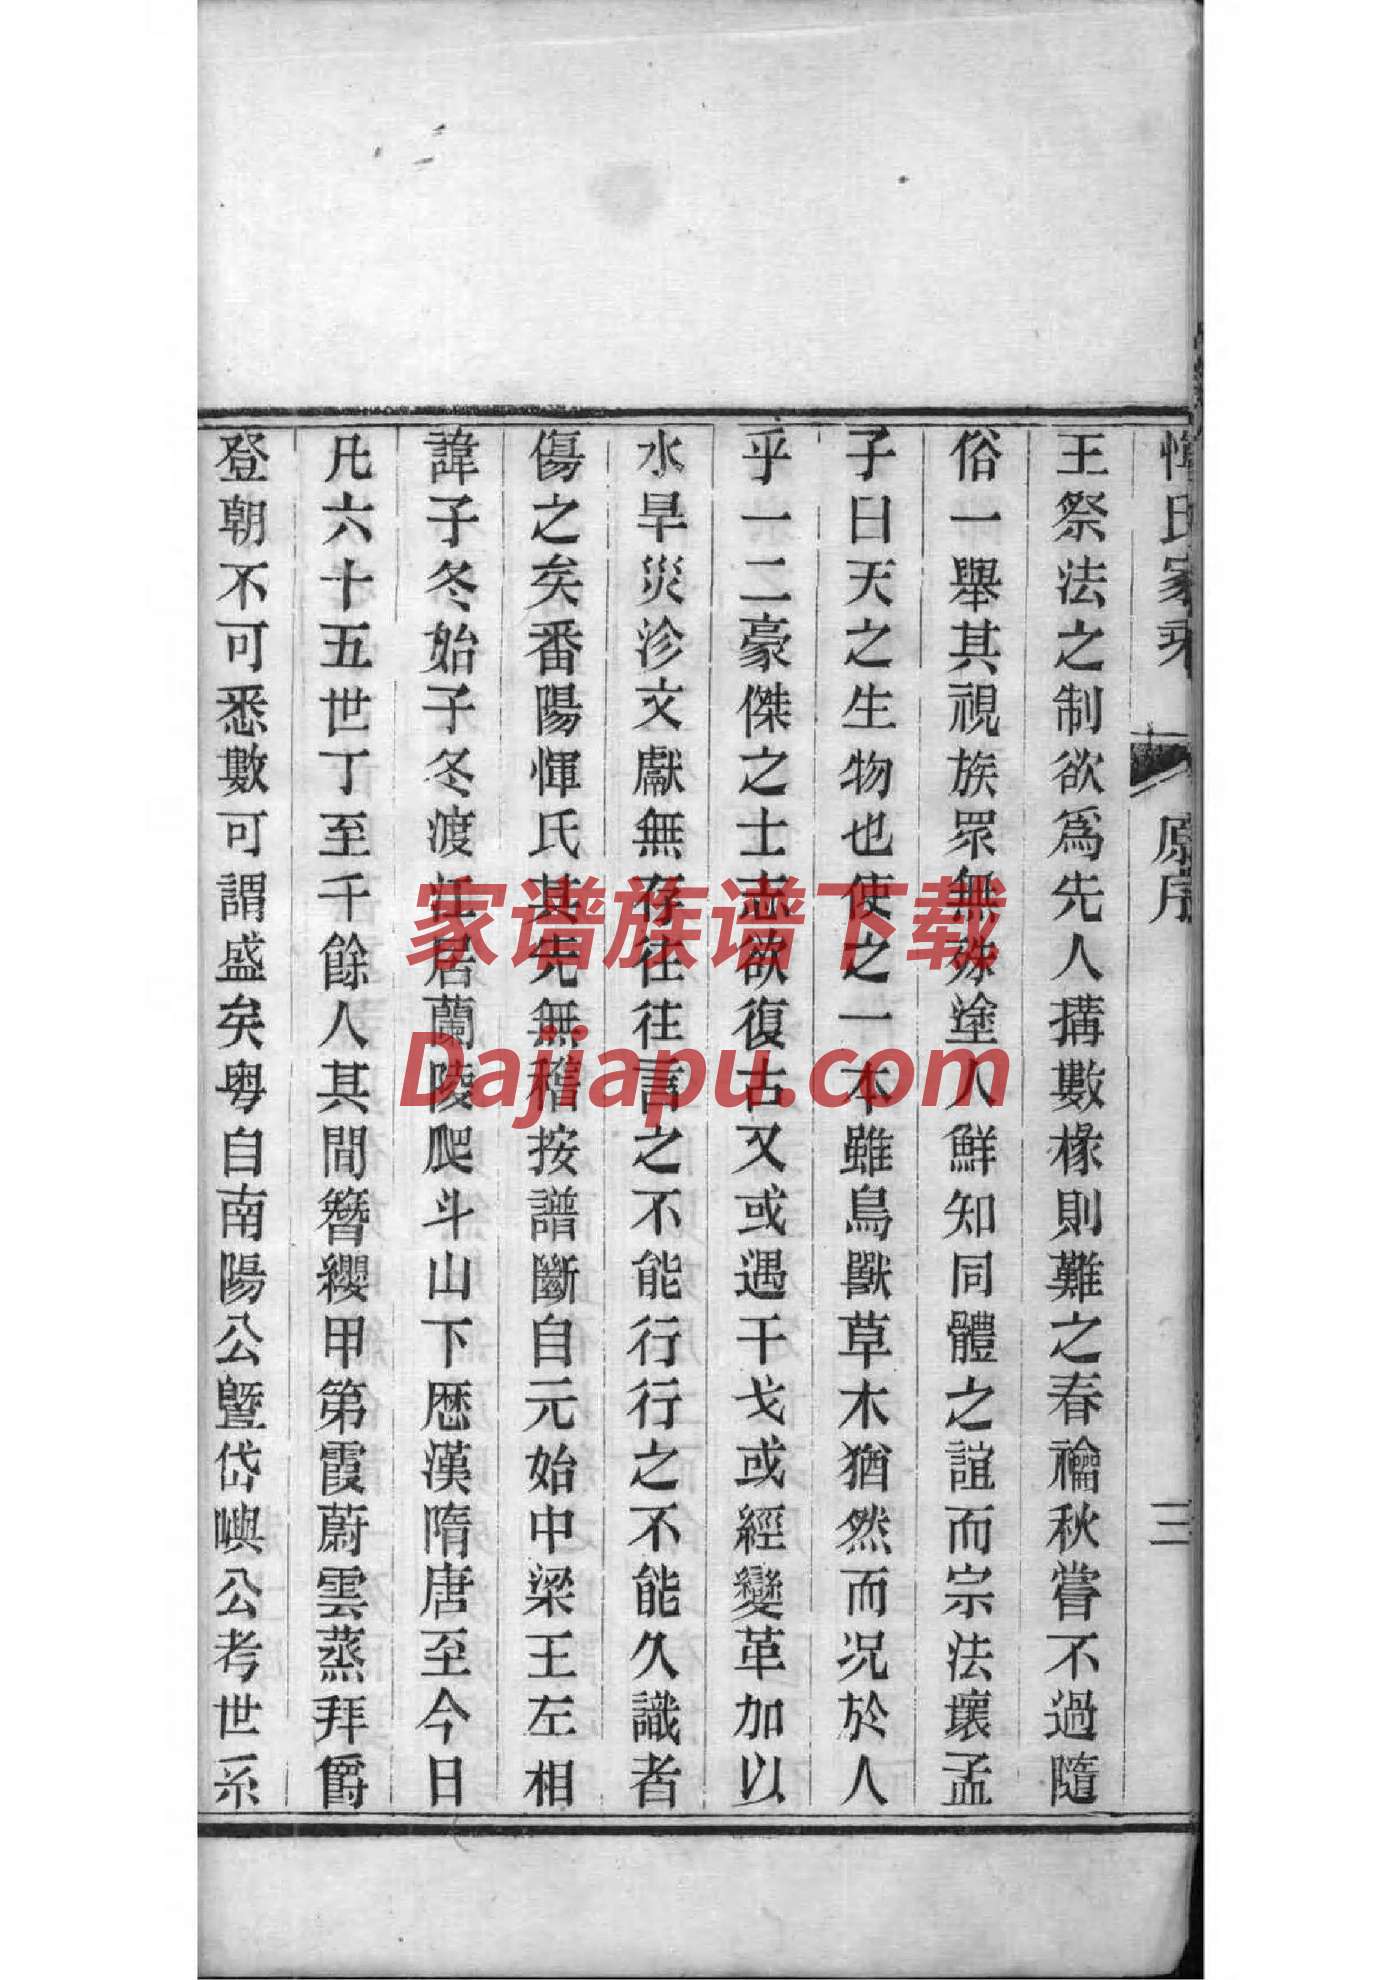 惲氏家乘 原序 三
王祭法之制欲爲先人搆數椽則難之春禴秋嘗不過隨
俗一舉其視族眾無殊塗人鮮知同體之誼而宗法壞孟
子曰天之生物也使之一本雖鳥獸草木猶然而况於人
乎一二豪傑之士志欲復古又或遇干戈或經變革加以
水旱災沴文獻無存往往言之不能行行之不能久識者
傷之矣番陽惲氏其先無稽按譜斷自元始中梁王左相
諱子冬始子冬渡江居蘭陵爬斗山下歷漢隋唐至今日
凡六十五世丁至千餘人其間簪纓甲第霞蔚雲蒸拜爵
登朝不可悉數可謂盛矣粤自南陽公曁岱嶼公考世系
家谱族谱下载
Dajiapu.com